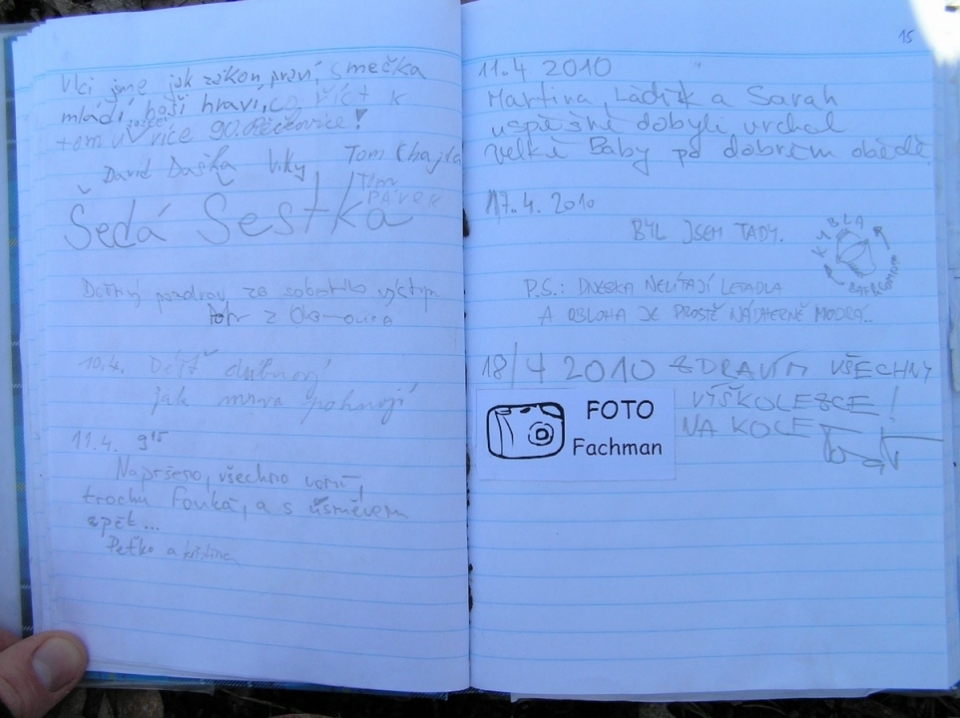 Vlci jsme jak zákon praví, smečka
mládí, hoši hraví, co říct k
tomu více 90. Řečkovice!
David Daška Viky Tom Chajda
Tom
PAVEK
Šedá Šestka
pozdrav ze sobotního výstupu
Petr z Olomouce
10.4. Déšť dubnový
jak mrva pohnojí
11.4. 9¹⁵
Napršeno, všechno voní,
trochu fouká, a s úsměvem
zpět...
Peťko a kristina
15
11.4 2010
Martina, Ládík a Sarah
úspěšně dobyli vrchol
Velké Baby po dobrém obědě.
17.4. 2010
BYL JSEM TADY.
KYBLA
P.S.: DNESKA NELÍTAJÍ LETADLA
A OBLOHA JE PROSTĚ NÁDHERNĚ MODRÁ..
18/4 2010 ZDRAVÍM VŠECHNY
VÝŠKOLEZCE!
NA KOLE
FOTO
Fachman